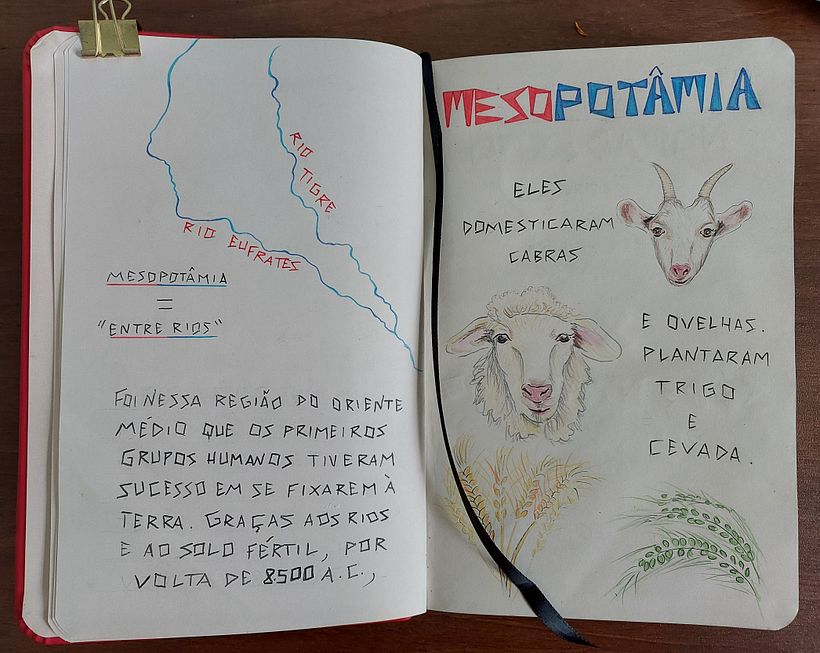 RIO TIGRE
RIO EUFRATES
MESOPOTÂMIA
=
"ENTRE RIOS"
FOI NESSA REGIÃO DO ORIENTE
MÉDIO QUE OS PRIMEIROS
GRUPOS HUMANOS TIVERAM
SUCESSO EM SE FIXAREM À
TERRA. GRAÇAS AOS RIOS
E AO SOLO FÉRTIL, POR
VOLTA DE 8.500 A.C.,
MESOPOTÂMIA
ELES
DOMESTICARAM
CABRAS
E OVELHAS.
PLANTARAM
TRIGO
E
CEVADA.